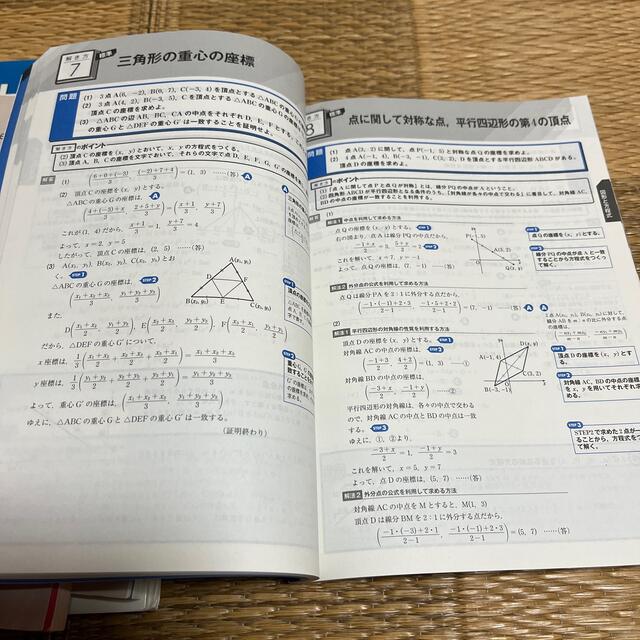 解き方
7
標準
三角形の重心の座標
問題
(1) 3点A(6, −2), B(0, 7), C(−3, 4)を頂点とする△ABCの重心の
(2) 3点A(4, 2), B(−3, 5), Cを頂点とする△ABCの重心の座標が
頂点Cの座標を求めよ。
(3) △ABCの辺AB, BC, CAの中点をそれぞれD, E, Fとする。
の重心Gと△DEFの重心G′は一致することを証明せよ。
解き方のポイント
(2) 頂点Cの座標を(x, y)とおいて, x, yの方程式をつくる。
(3) 頂点A, B, Cの座標を文字でおいて, それらの文字でD, E, F, G, G′の座標を
解答
(1) = (1, 3) ……(答)
(2) 頂点Cの座標を(x, y)とする。
△ABCの重心の座標は,
(4+(−3)+x / 3, 2+5+y / 3) = (x+1 / 3, y+7 / 3)
これが(1, 4)だから, x+1 / 3 = 1, y+7 / 3 = 4
よって, x=2, y=5
したがって, 頂点Cの座標は, (2, 5) ……(答)
(3) A(x₁, y₁), B(x₂, y₂), C(x₃, y₃)とお
く。 STEP1
△ABCの重心Gは, STEP2
(x₁+x₂+x₃ / 3, y₁+y₂+y₃ / 3)
A(x₁, y₁)
D
F
E
B(x₂, y₂)
C(x₃, y₃)
また,
D(x₁+x₂ / 2, y₁+y₂ / 2), E(x₂+x₃ / 2, y₂+y₃ / 2), F(
だから, △DEFの重心G′について,
x座標は, 1/3(x₁+x₂ / 2 + x₂+x₃ / 2 + x₃+x₁ / 2) = x₁+x₂+x₃ / 3
y座標は, 1/3(y₁+y₂ / 2 + y₂+y₃ / 2 + y₃+y₁ / 2) = y₁+y₂+y₃ / 3
よって, 重心G′の座標は, (x₁+x₂+x₃ / 3, y₁+y₂+y₃ / 3)
ゆえに, △ABCの重心Gと△DEFの重心G′は一致する。
(証明終わり)
8
標準
点に関して対称な点, 平行四辺形の第4の頂点
問題
(1) 点A(3, 2)に関して, 点P(−1, 5)と対称な点Qの座標を求めよ。
(2) 4点A(−1, 4), B(−3, −1), C(3, 2), Dを頂点とする平行四辺形ABCDがある。
頂点Dの座標を求めよ。
ポイント
(1) 「点Aに関して点Pと点Qが対称」とは, 線分PQの中点がAということ。
BDの中点の座標が一致することを利用する。
図形と方程式
解法1 中点を利用して求める方法
点Qの座標を(x, y)とする。 STEP1
右の図より, 点Aは線分PQの中点だから,
−1+x / 2 = 3, 5+y / 2 = 2 STEP2
これを解いて, x=7, y=−1
よって, 点Qの座標は, (7, −1) ……(答)
P(−1, 5)
A(3, 2)
Q(x, y)
STEP1
点Qの座標を(x, y)とする。
STEP2
線分PQの中点が点Aと一
致することから方程式をつくっ
て解く。
解法2 外分点の公式を利用して求める方法
点Qは線分PAを2：1に外分する点だから,
(−1・(−1)+2・3 / 2−1, −1・5+2・2 / 2−1) = (7, −1) ……(答)
(2)
解法1 平行四辺形の対角線の性質を利用する方法
頂点Dの座標を(x, y)とする。 STEP1
対角線ACの中点の座標は, STEP2
(−1+3 / 2, 4+2 / 2) = (1, 3) ……①
対角線BDの中点の座標は,
(−3+x / 2, −1+y / 2) ……②
平行四辺形の対角線は, 各々の中点で交わる
ので, 対角線ACの中点とBDの中点は一致
する。 STEP3
ゆえに, ①, ②より,
−3+x / 2 = 1, −1+y / 2 = 3
これを解いて, x=5, y=7
よって, 点Dの座標は, (5, 7) ……(答)
A(−1, 4)
D(x, y)
C(3, 2)
B(−3, −1)
STEP1
頂点Dの座標を(x, y)とす
る。
STEP2
対角線AC, BDの中点の座標
をx, yを用いてそれぞれ求
める。
STEP3
STEP2で求めた2点が一
ることから, 方程式をつ
て解く。
解法2 外分点の公式を利用して求める方法
対角線ACの中点をMとすると, M(1, 3)
頂点Dは線分BMを2：1に外分する点だから,
(−1・(−3)+2・1 / 2−1, −1・(−1)+2・3 / 2−1) = (5, 7) ……(答)